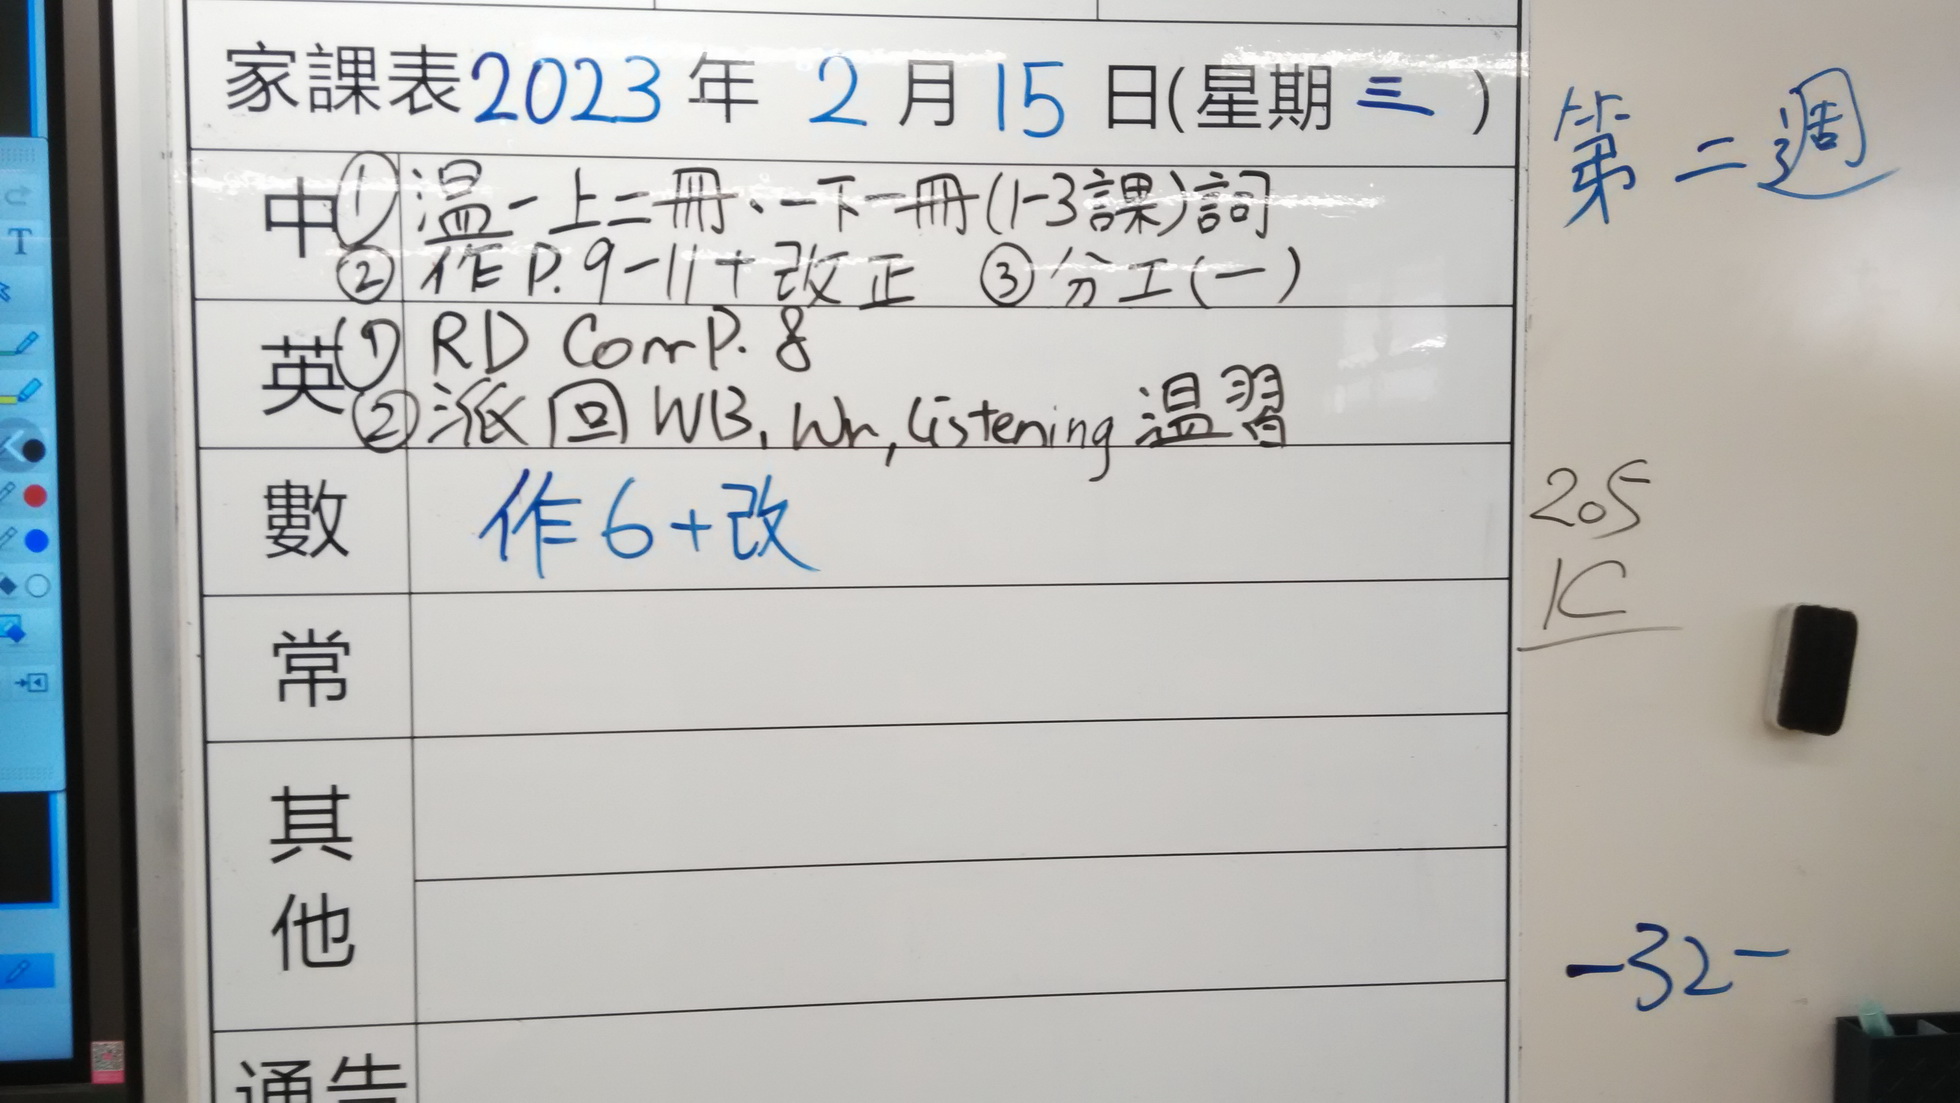 家課表2023年 2月15日(星期三)
第二週
中 ① 溫一上二冊、一下一冊(1-3課)詞
② 作P.9-11+改正 ③分工(一)
英 ① RD Comp. 8
② 派回WB, Wr, Listening 溫習
數 作6+改
205
1C
常
其他
-32-
通告
T